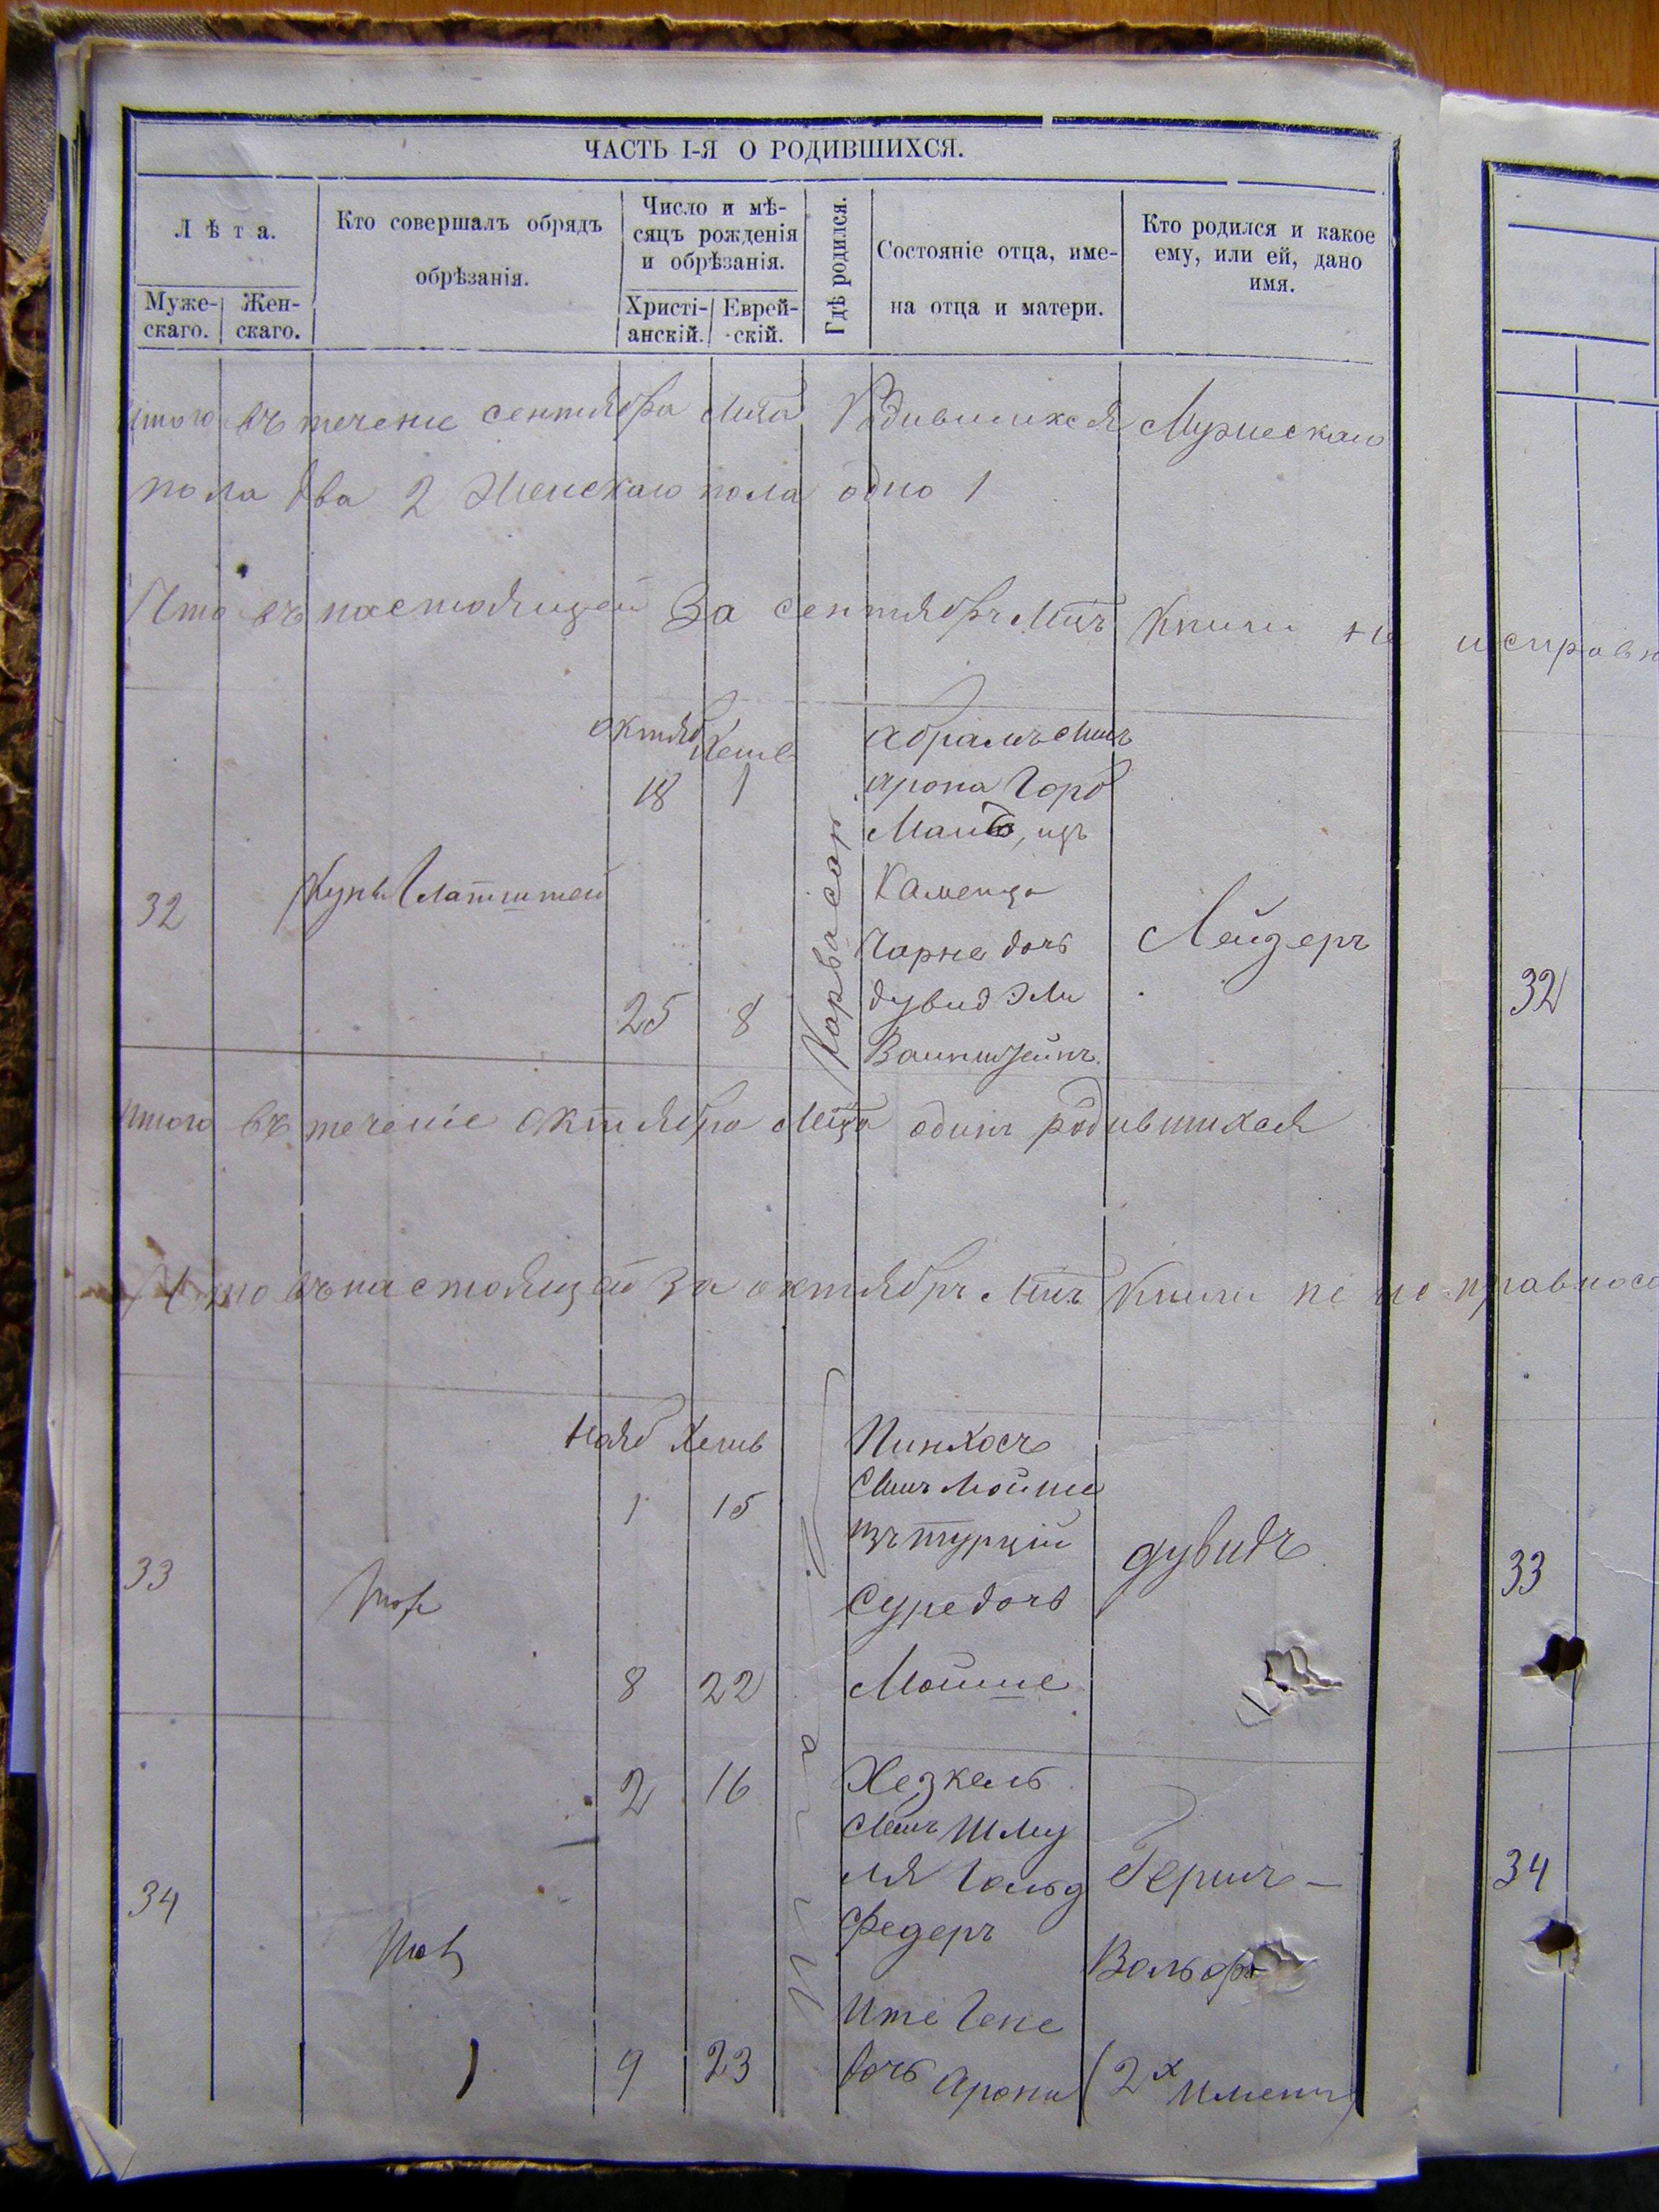 ЧАСТЬ I-Я О РОДИВШИХСЯ.
Лѣта.
Муже-
скаго.
Жен-
скаго.
Кто совершалъ обрядъ
обрѣзанія.
Число и мѣ-
сяцъ рожденія
и обрѣзанія.
Христі-
анскій.
Еврей-
скій.
Гдѣ родился.
Состояніе отца, име-
на отца и матери.
Кто родился и какое
ему, или ей, дано
имя.
Итого въ течение сентября Родившихся Мужескаго
пола два 2 Женскаго пола одно 1
Что въ настоящей За сентябрь Мцъ Книги не исправн
32
октяб Хешв
18 1
25 8
Абрамъ
Арона Горб
изъ
Каменца
Чарна дочь
дувид Эли
Ваинштейнъ
Лейзеръ
32
Итого въ течение октября одинъ родившихся
Что въ настоящей За октябрь Мцъ Книги не исправнос
33
Нояб Хешв
1 15
8 22
Пинхосъ
Мойше
изъ турцій
Суре дочь
Мойше
дувидъ
33
34
2 16
9 23
Хезкель
Шму
ля Гольд
федеръ
Ите Гене
дочь Арона
Гершъ-
Вольфъ
(2х Имени)
34